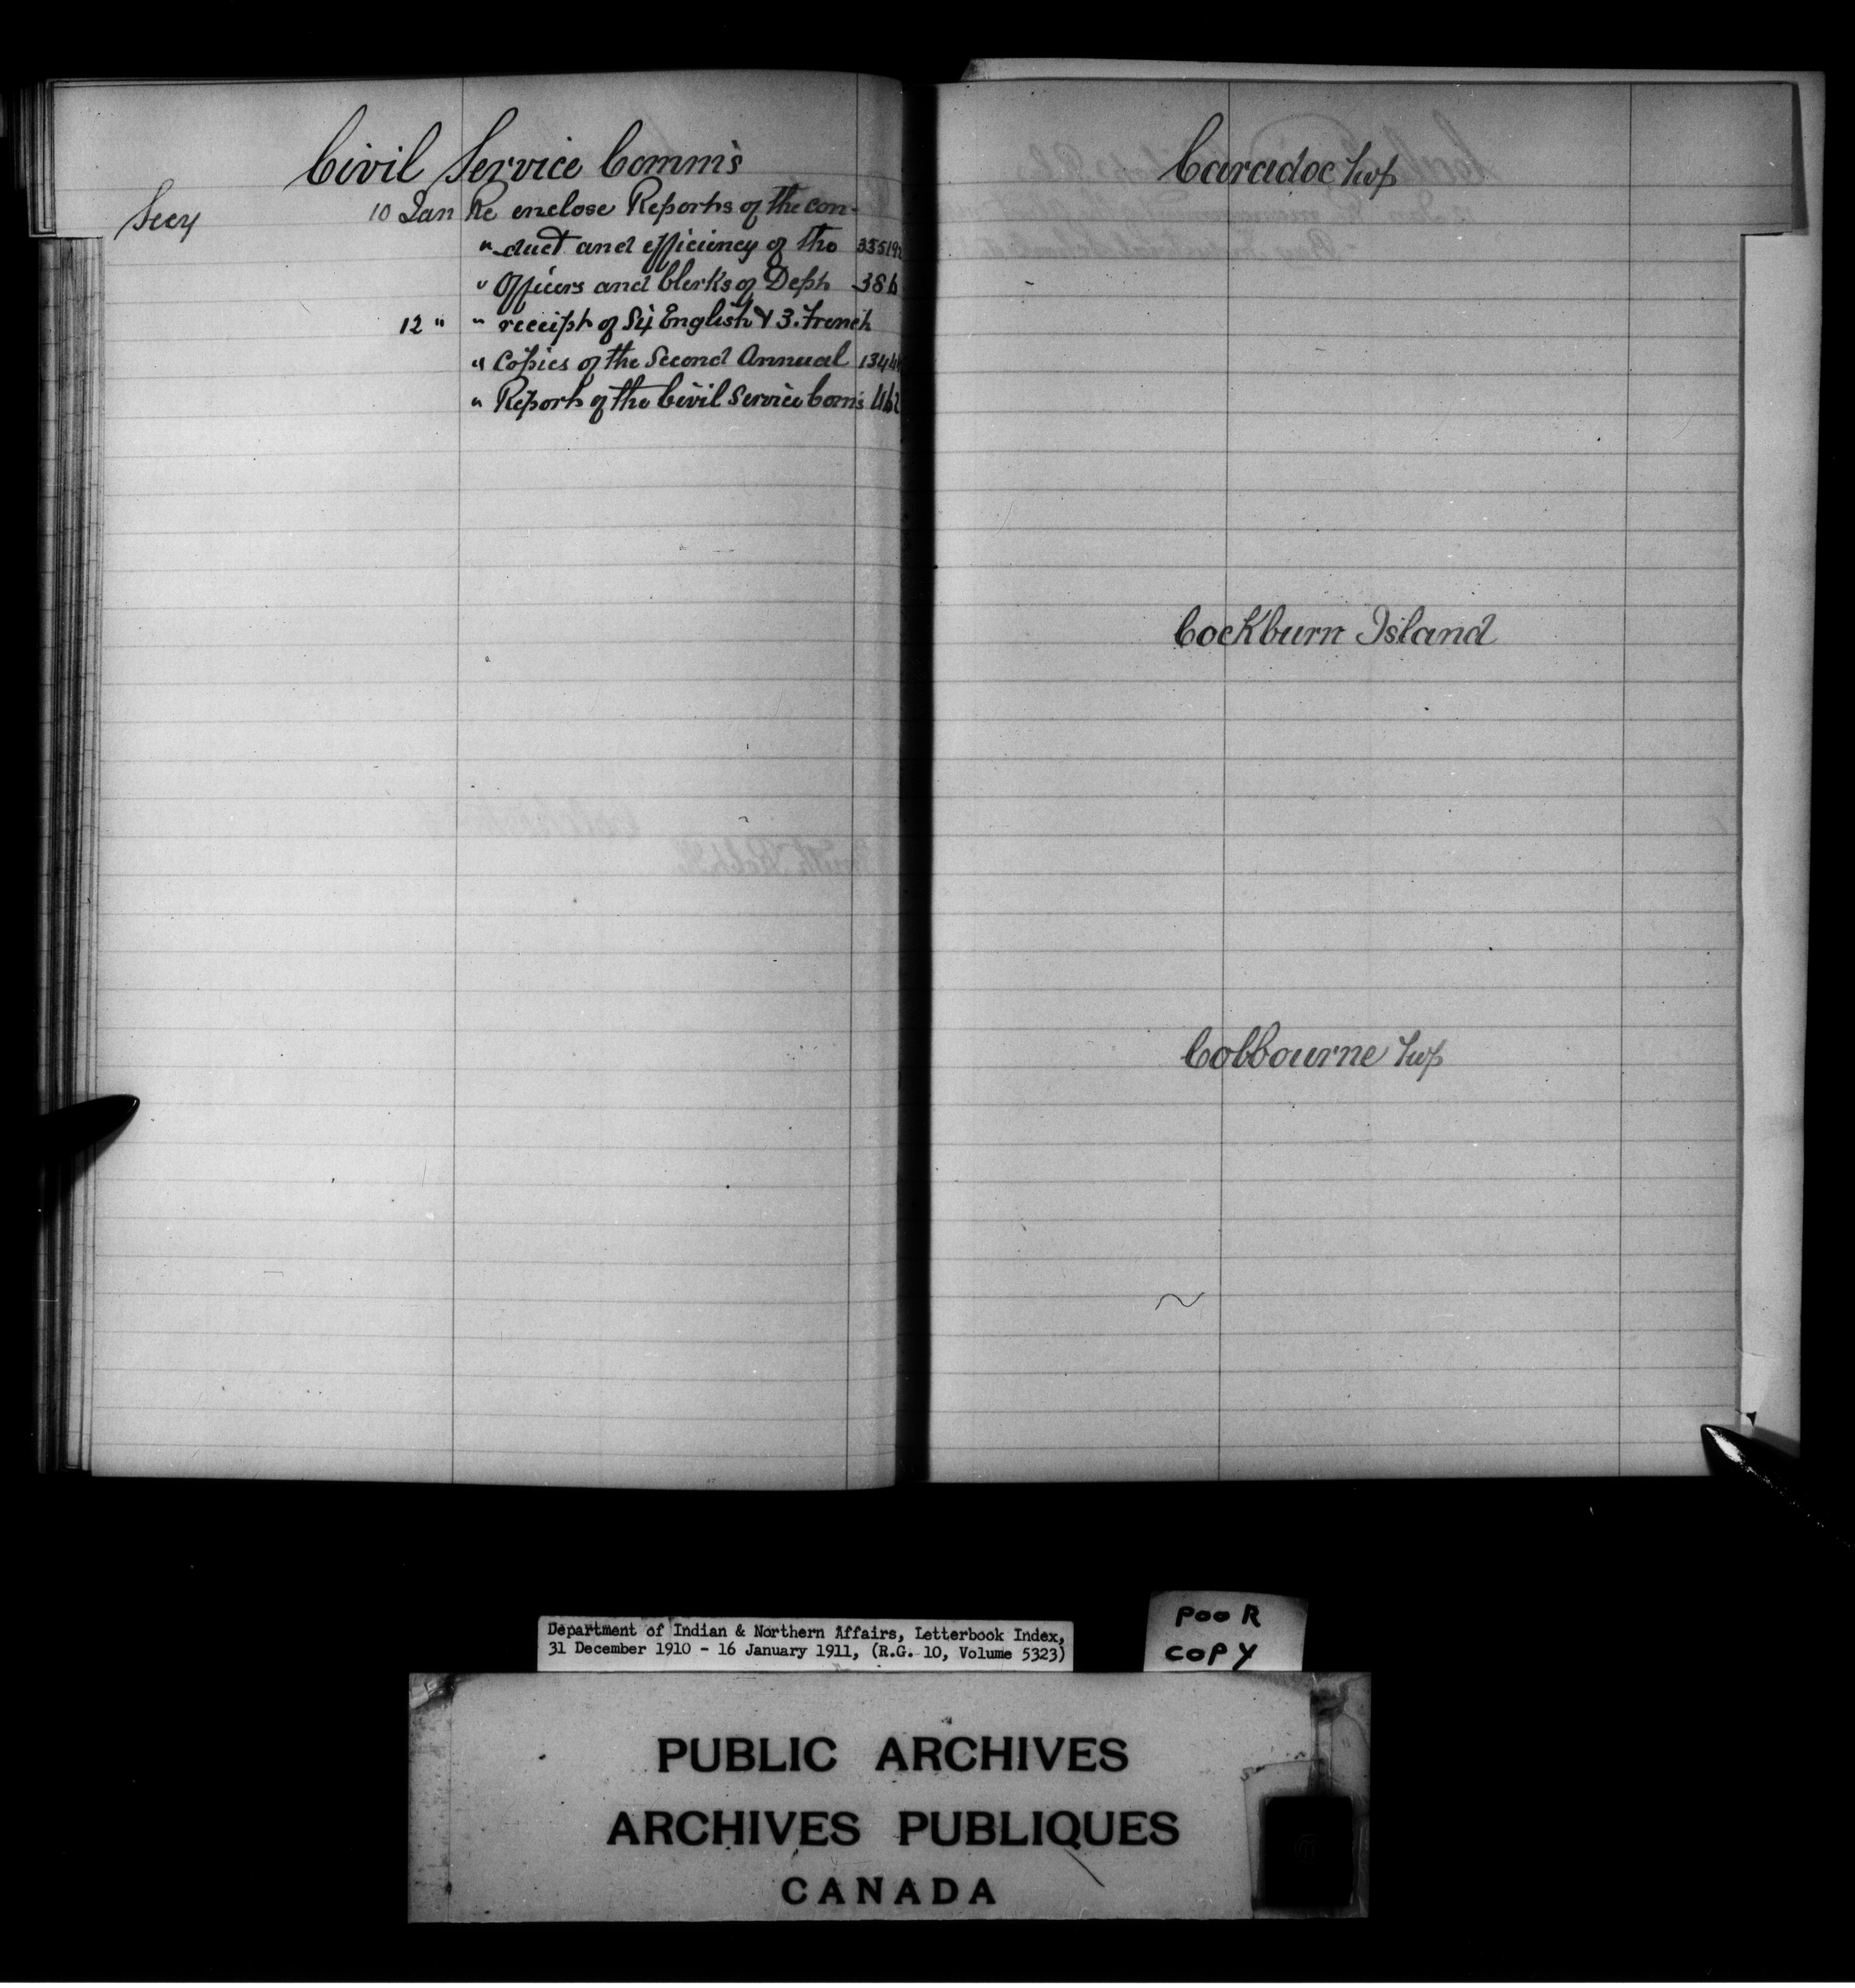 Civil Service Comm's
Secy 10 Jan Re enclose Reports of the con-
" duct and efficiency of the
" Officers and Clerks of Dept 386
12 " " receipt of Six English & 3. French
" Copies of the Second Annual
" Report of the Civil Service Com's 462
Caradoc Twp
Cockburn Island
Colbourne Twp
Department of Indian & Northern Affairs, Letterbook Index,
31 December 1910 - 16 January 1911, (R.G. 10, Volume 5323)
POOR
COPY
PUBLIC ARCHIVES
ARCHIVES PUBLIQUES
CANADA